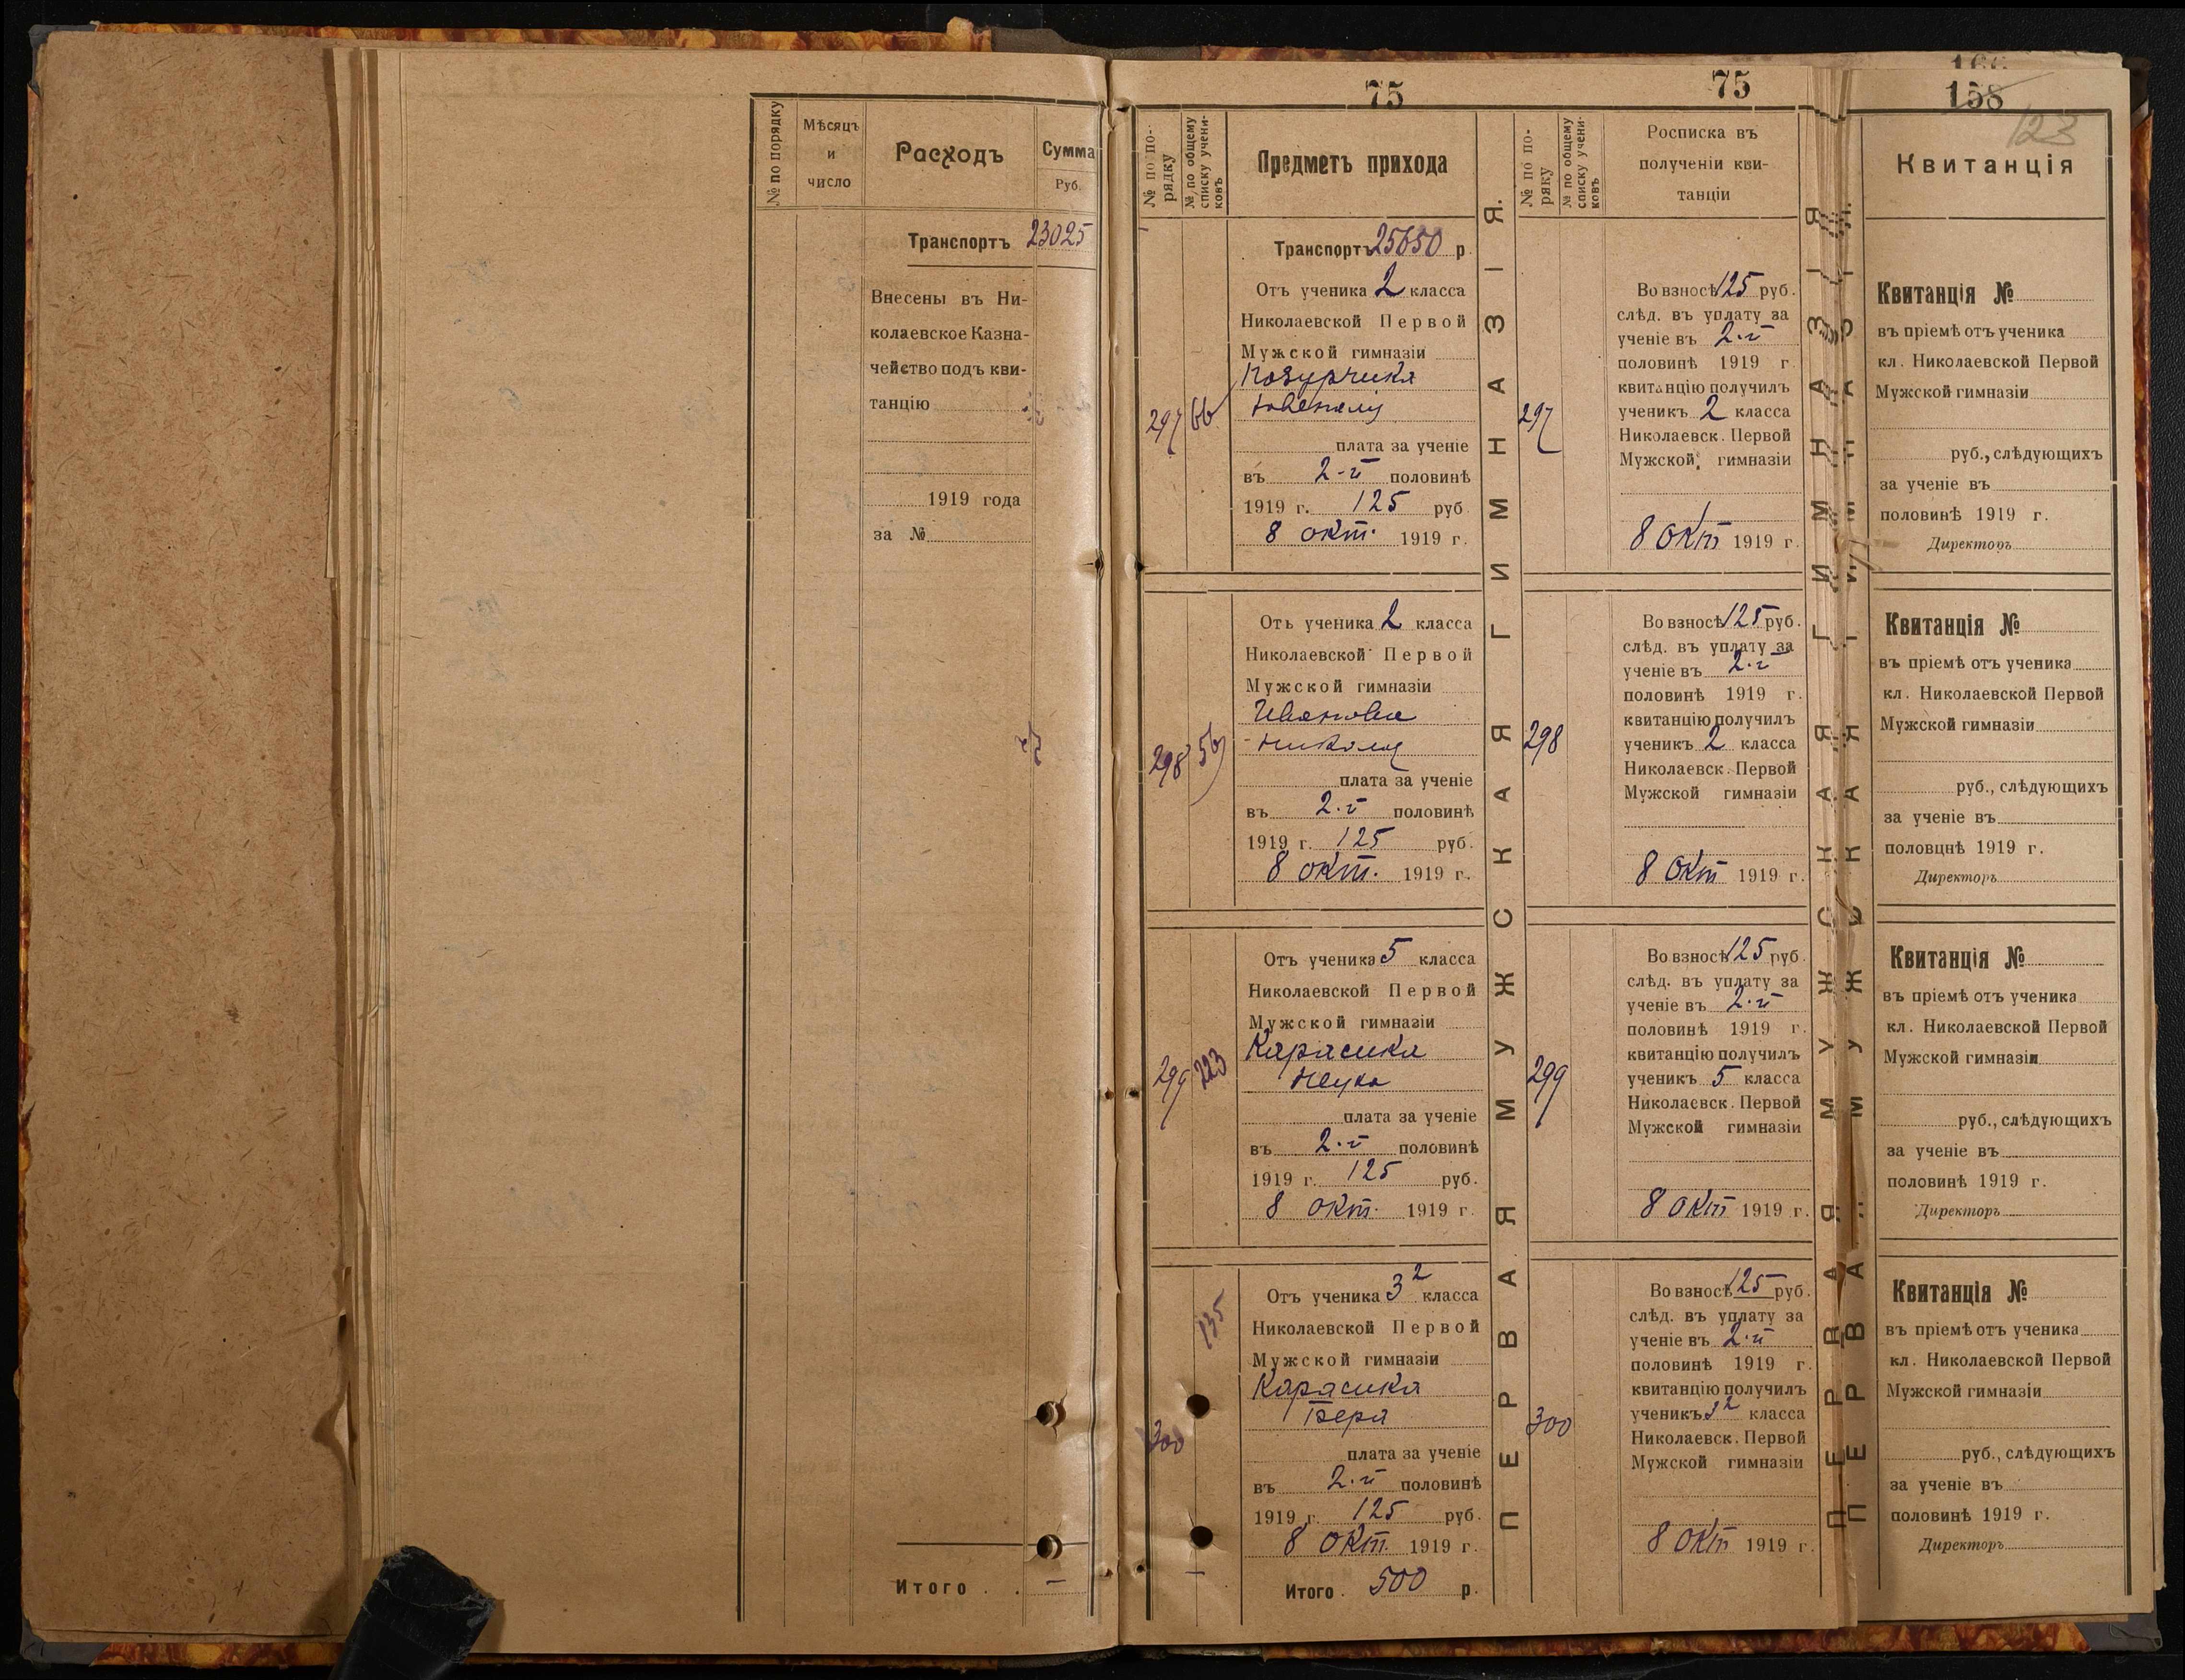 № по порядку
Мѣсяцъ
и
число
Расходъ
Сумма
Руб.
Транспортъ 23025
Внесены въ Ни-
колаевское Казна-
чейство подъ кви-
танцію
1919 года
за №
Итого . . —
75
№ по по-
рядку
№ по общему
списку учени-
ковъ
Предметъ прихода
Транспортъ 25650 р
Отъ ученика 2 класса
Николаевской Первой
Мужской гимназіи
297 66
плата за ученіе
въ 2-й половинѣ
1919 г. 125 руб
8 окт. 1919 г.
Отъ ученика 2 класса
Николаевской Первой
Мужской гимназіи
Иванова
Николая
298 56
плата за ученіе
въ 2-й половинѣ
1919 г. 125 руб.
8 окт. 1919 г.
Отъ ученика 5 класса
Николаевской Первой
Мужской гимназіи
Карасика
299 223
плата за ученіе
въ 2-й половинѣ
1919 г. 125 руб.
8 окт. 1919 г.
Отъ ученика 3² класса
135
Николаевской Первой
Мужской гимназіи
Карасика
Бера
300
плата за ученіе
въ 2-й половинѣ
1919 г. 125 руб.
8 окт. 1919 г.
Итого . 500 р.
ПЕРВАЯ МУЖСКАЯ ГИМНАЗІЯ.
75
№ по по-
ряку
№ по общему
списку учени-
ковъ
Росписка въ
полученіи кви-
танціи
Во взносѣ 125 руб.
слѣд. въ уплату за
ученіе въ 2-й
половинѣ 1919 г.
квитанцію получилъ
297
ученикъ 2 класса
Николаевск. Первой
Мужской гимназіи
8 Окт 1919 г.
Во взносѣ 125 руб.
слѣд. въ уплату за
ученіе въ 2-й
половинѣ 1919 г.
квитанцію получилъ
298
ученикъ 2 класса
Николаевск. Первой
Мужской гимназіи
8 Окт 1919 г.
Во взносѣ 125 руб.
слѣд. въ уплату за
ученіе въ 2-й
половинѣ 1919 г.
квитанцію получилъ
299
ученикъ 5 класса
Николаевск. Первой
Мужской гимназіи
8 Окт 1919 г.
Во взносѣ 125 руб.
слѣд. въ уплату за
ученіе въ 2-й
половинѣ 1919 г.
квитанцію получилъ
300
ученикъ 3² класса
Николаевск. Первой
Мужской гимназіи
8 Окт 1919 г.
ПЕРВАЯ МУЖСКАЯ ГИМНАЗІЯ
ПЕРВАЯ МУЖСКАЯ
158
123
Квитанція
Квитанція №
въ пріемѣ отъ ученика
кл. Николаевской Первой
Мужской гимназіи
руб., слѣдующихъ
за ученіе въ
половинѣ 1919 г.
Директоръ
Квитанція №
въ пріемѣ отъ ученика
кл. Николаевской Первой
Мужской гимназіи
руб., слѣдующихъ
за ученіе въ
половцнѣ 1919 г.
Директоръ
Квитанція №
въ пріемѣ отъ ученика
кл. Николаевской Первой
Мужской гимназіи
руб., слѣдующихъ
за ученіе въ
половинѣ 1919 г.
Директоръ
Квитанція №
въ пріемѣ отъ ученика
кл. Николаевской Первой
Мужской гимназіи
руб., слѣдующихъ
за ученіе въ
половинѣ 1919 г.
Директоръ